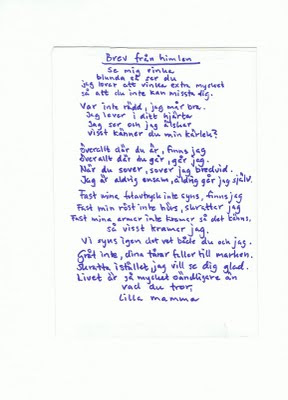 Brev från himlen
Se mig vinka
blunda så ser du
jag lovar att vinka extra mycket
så att du inte kan missta dig.
Var inte rädd, jag mår bra.
Jag lever i ditt hjärta
Jag ser och jag älskar
visst känner du min kärlek?
Överallt där du är, finns jag
överallt där du går, går jag.
När du sover, sover jag bredvid.
Jag är aldrig ensam, aldrig går jag själv.
Fast mina fotavtryck inte syns, finns jag
Fast min röst inte hörs, skrattar jag
Fast mina armar inte kramar så det känns,
så visst kramar jag.
Vi syns igen det vet både du och jag.
Gråt inte, dina tårar faller till marken.
Skratta istället, jag vill se dig glad.
Livet är så mycket oändligare än
vad du tror,
Lilla mamma